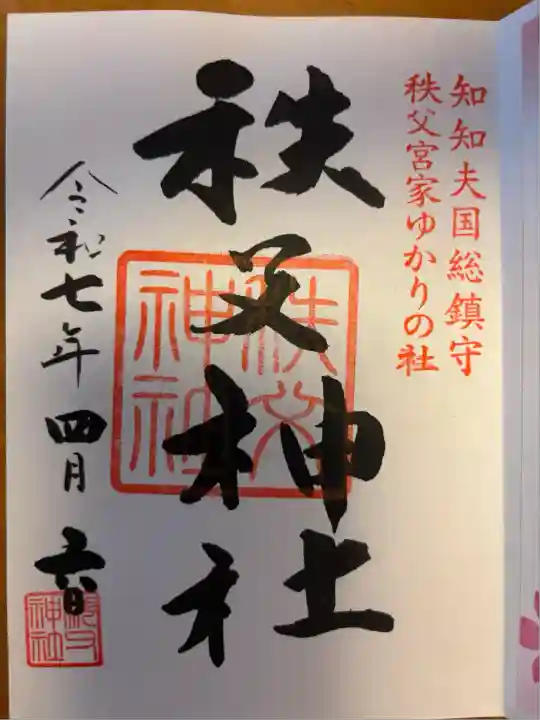 知知夫国総鎮守
秩父宮家ゆかりの社
秩父神社
秩父神社
令和七年四月六日
秩父神社